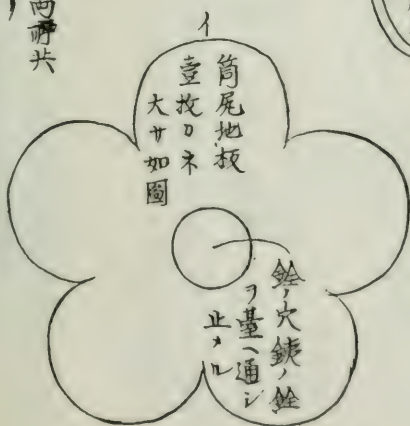 両神共
イ
筒尾地板
壹枚カネ
大サ如圖
鋡ノ穴銕ノ鋡
ヲ臺ヘ通シ
止メル